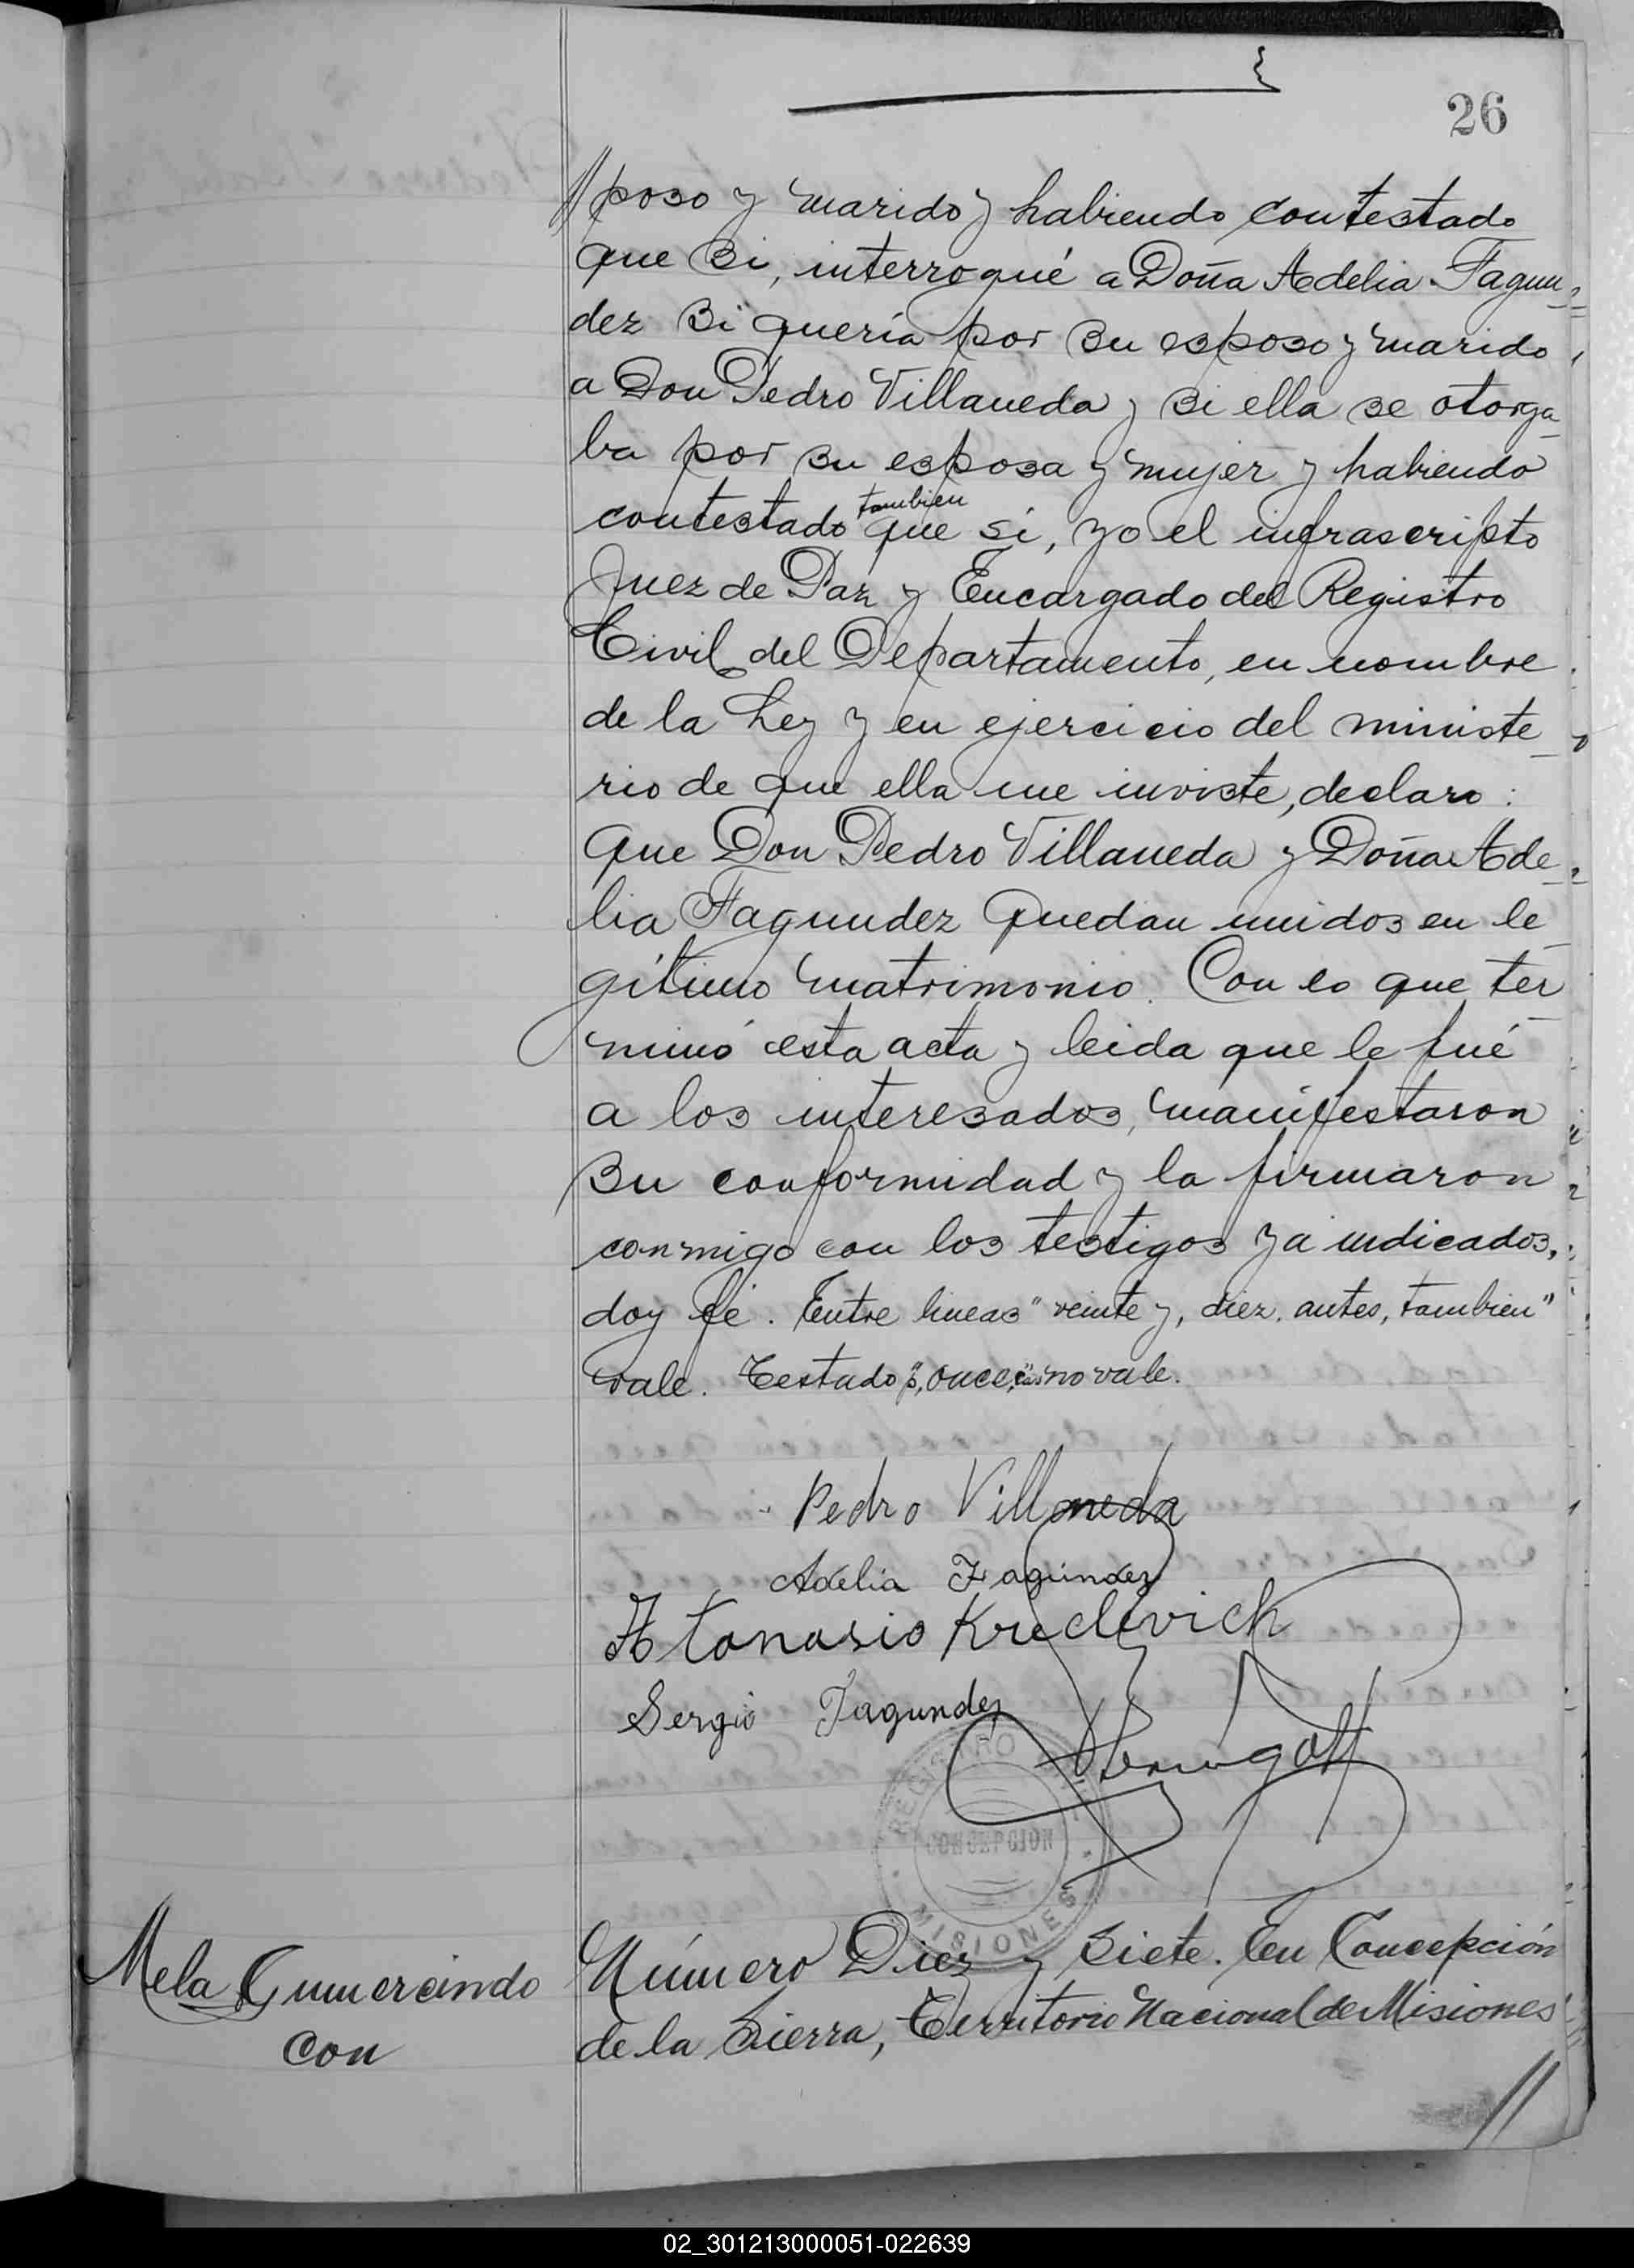 26
//poso y marido y habiendo contestado
que si, interrogué a Doña Adelia Fagun=
dez si quería por su esposo y marido
a Don Pedro Villaneda y si ella se otorga_
ba por su esposa y mujer y habiendo
tambien
contestado que si, yo el infrascripto
Juez de Paz y Encargado del Registro
Civil del Departamento, en nombre
de la Ley y en ejercicio del ministe_
rio de que ella me inviste, declaro:
Que Don Pedro Villaneda y Doña Ade_
lia Fagundez quedan unidos en le_
gítimo matrimonio. Con lo que ter_
minó esta acta y leida que le fué
a los interesados, manifestaron
su conformidad y la firmaron
conmigo con los testigos ya indicados,
doy fé. Entre lineas "veinte y, diez, antes, tambien"
vale. Testado , once, no vale.
Pedro Villaneda
Adelia Fagundez
Atanasio Kredevich
Sergio Fagundez
REGISTRO CIVIL
CONCEPCION
MISIONES
Mela Gumercindo
con
Número Diez y Siete. En Concepción
de la Sierra, Territorio Nacional de Misiones
//
02_301213000051-022639